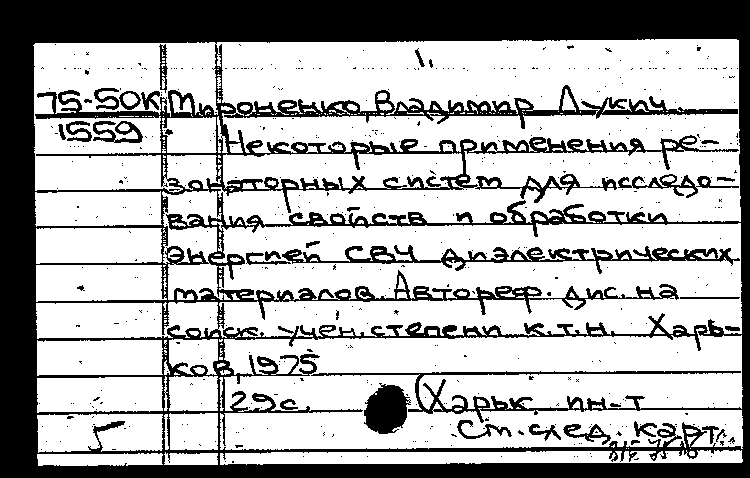 1.
75-50К Мироненко, Владимир Лукич.
1559 Некоторые применения ре-
зонаторных систем для исследо-
вания свойств и обработки
энергией СВЧ диэлектрических
материалов. Автореф. дис. на
соиск. учен. степени к.т.н. Харь-
ков, 1975
29с. (Харьк. ин-т
5 См. след. карт.